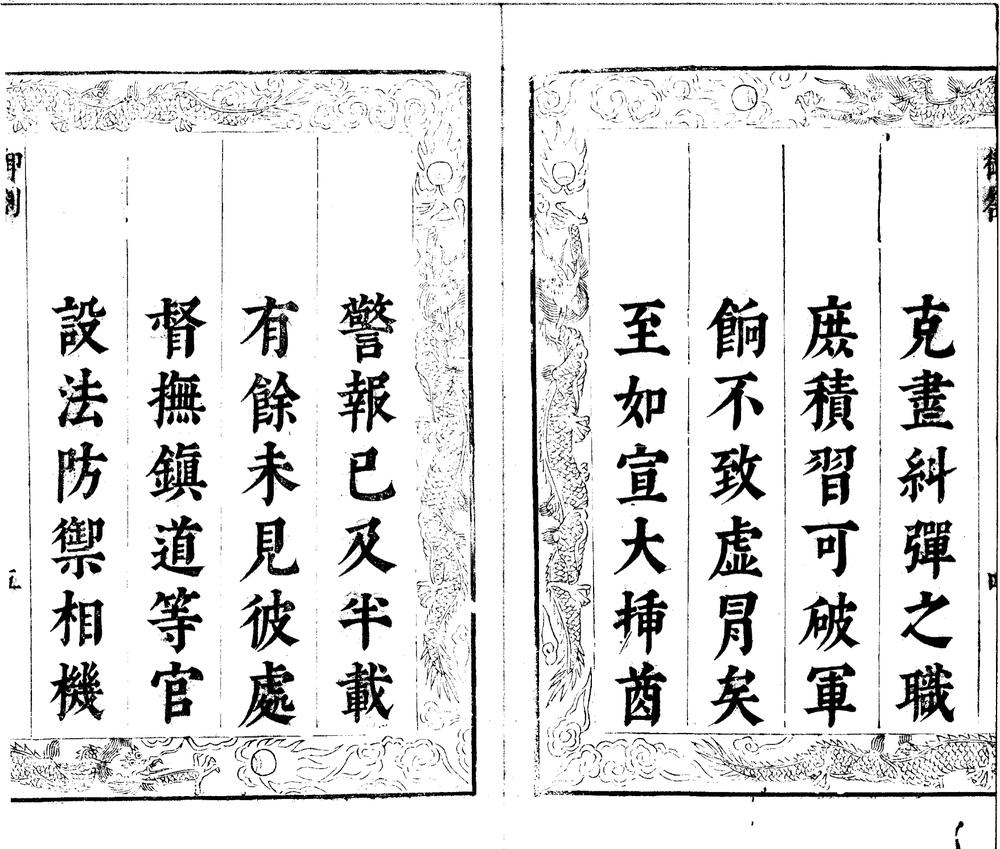 克盡糾彈之職
庶積習可破軍
餉不致虛冒矣
至如宣大揷酋
警報已及半載
有餘未見彼處
督撫鎮道等官
設法防禦相機